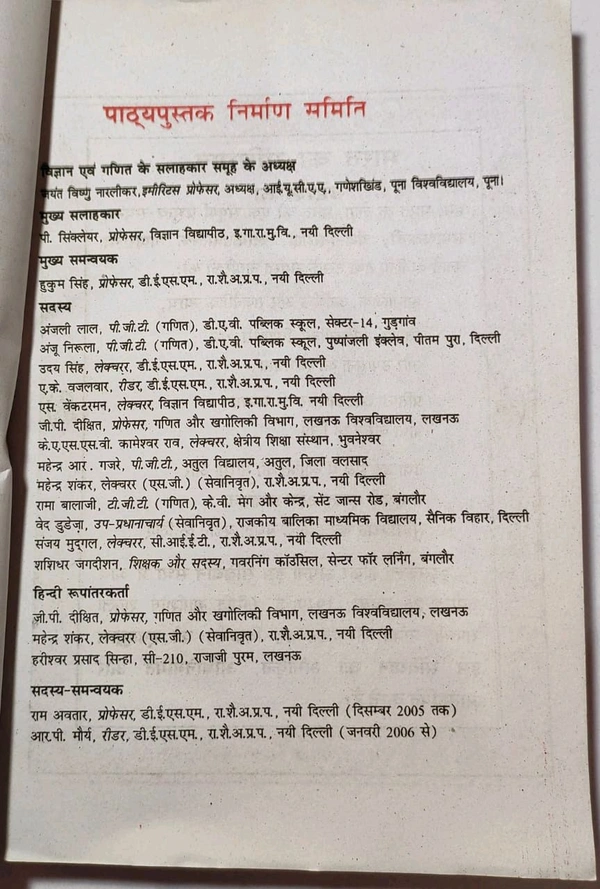 पाठ्यपुस्तक निर्माण समिति
विज्ञान एवं गणित के सलाहकार समूह के अध्यक्ष
जयंत विष्णु नारलीकर, इमीरिटस प्रोफेसर, अध्यक्ष, आई.यू.सी.ए.ए., गणेशखिंड, पूना विश्वविद्यालय, पूना।
मुख्य सलाहकार
पी. सिंक्लेयर, प्रोफेसर, विज्ञान विद्यापीठ, इ.गा.रा.मु.वि., नयी दिल्ली
मुख्य समन्वयक
हुकुम सिंह, प्रोफेसर, डी.ई.एस.एम., रा.शै.अ.प्र.प., नयी दिल्ली
सदस्य
अंजली लाल, पी.जी.टी. (गणित), डी.ए.वी. पब्लिक स्कूल, सेक्टर-14, गुड़गांव
अंजू निरूला, पी.जी.टी. (गणित), डी.ए.वी. पब्लिक स्कूल, पुष्पांजली इंक्लेव, पीतम पुरा, दिल्ली
उदय सिंह, लेक्चरर, डी.ई.एस.एम., रा.शै.अ.प्र.प., नयी दिल्ली
ए.के. वजलवार, रीडर, डी.ई.एस.एम., रा.शै.अ.प्र.प., नयी दिल्ली
एस. वेंकटरमन, लेक्चरर, विज्ञान विद्यापीठ, इ.गा.रा.मु.वि. नयी दिल्ली
जी.पी. दीक्षित, प्रोफेसर, गणित और खगोलिकी विभाग, लखनऊ विश्वविद्यालय, लखनऊ
के.ए.एस.एस.वी. कामेश्वर राव, लेक्चरर, क्षेत्रीय शिक्षा संस्थान, भुवनेश्वर
महेन्द्र आर . गजरे, पी.जी.टी., अतुल विद्यालय, अतुल, जिला वलसाद
महेन्द्र शंकर, लेक्चरर (एस.जी.) (सेवानिवृत), रा.शै.अ.प्र.प., नयी दिल्ली
रामा बालाजी, टी.जी.टी. (गणित), के.वी. मेग और केन्द्र, सेंट जान्स रोड, बंगलौर
वेद डुडेजा, उप-प्रधानाचार्य (सेवानिवृत), राजकीय बालिका माध्यमिक विद्यालय, सैनिक विहार, दिल्ली
संजय मुद्गल, लेक्चरर, सी.आई.ई.टी., रा.शै.अ.प्र.प., नयी दिल्ली
शशिधर जगदीशन, शिक्षक और सदस्य, गवरनिंग कॉउंसिल, सेन्टर फॉर लर्निंग, बंगलौर
हिन्दी रूपांतरकर्ता
जी.पी. दीक्षित, प्रोफेसर, गणित और खगोलिकी विभाग, लखनऊ विश्वविद्यालय, लखनऊ
महेन्द्र शंकर, लेक्चरर (एस.जी.) (सेवानिवृत), रा.शै.अ.प्र.प., नयी दिल्ली
हरीश्वर प्रसाद सिन्हा, सी-210, राजाजी पुरम, लखनऊ
सदस्य-समन्वयक
राम अवतार, प्रोफेसर, डी.ई.एस.एम., रा.शै.अ.प्र.प., नयी दिल्ली (दिसम्बर 2005 तक)
आर.पी. मौर्य, रीडर, डी.ई.एस.एम., रा.शै.अ.प्र.प., नयी दिल्ली (जनवरी 2006 से)